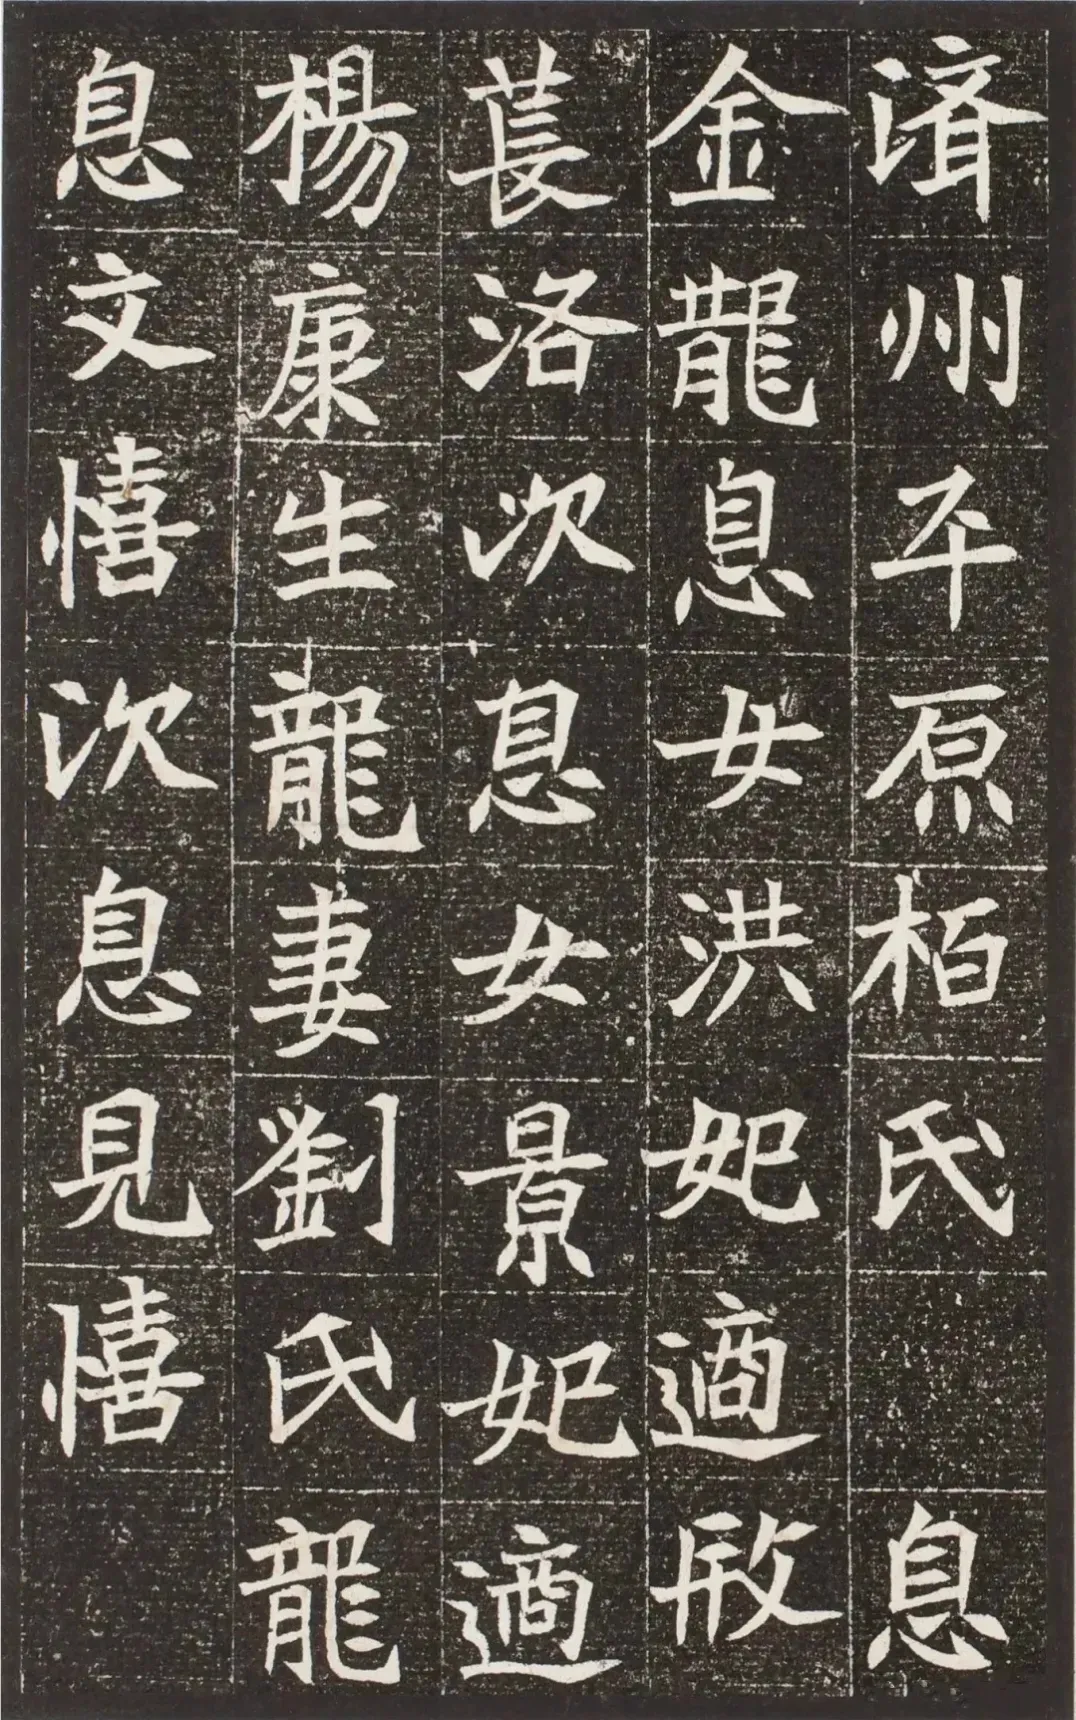 濟州平原柏氏　息
金龍息女洪妃適殷
萇洛次息女景妃適
楊康生龍妻劉氏龍
息文憘次息見憘